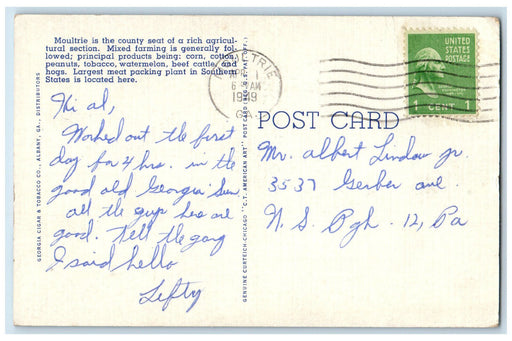 Moultrie is the county seat of a rich agricul-
tural section. Mixed farming is generally fol-
lowed; principal products being: corn, cotton,
peanuts, tobacco, watermelon, beef cattle, and
hogs. Largest meat packing plant in Southern
States is located here.
Hi al,
Worked out the first
day for 4 hrs. in the
good old Georgia Sun
all the guys here are
good. Tell the gang
I said hello
Lefty
GEORGIA CIGAR & TOBACCO CO., ALBANY, GA., DISTRIBUTORS
GENUINE CURTEICH-CHICAGO "C.T. AMERICAN ART" POST CARD (REG. U.S. PAT. OFF.)
MOULTRIE
1
AM
1949
GA.
UNITED
STATES
POSTAGE
1 CENT 1
POST CARD
Mr. Albert Lindow jr.
3537 Gerber ave.
N. S. Pgh. 12, Pa